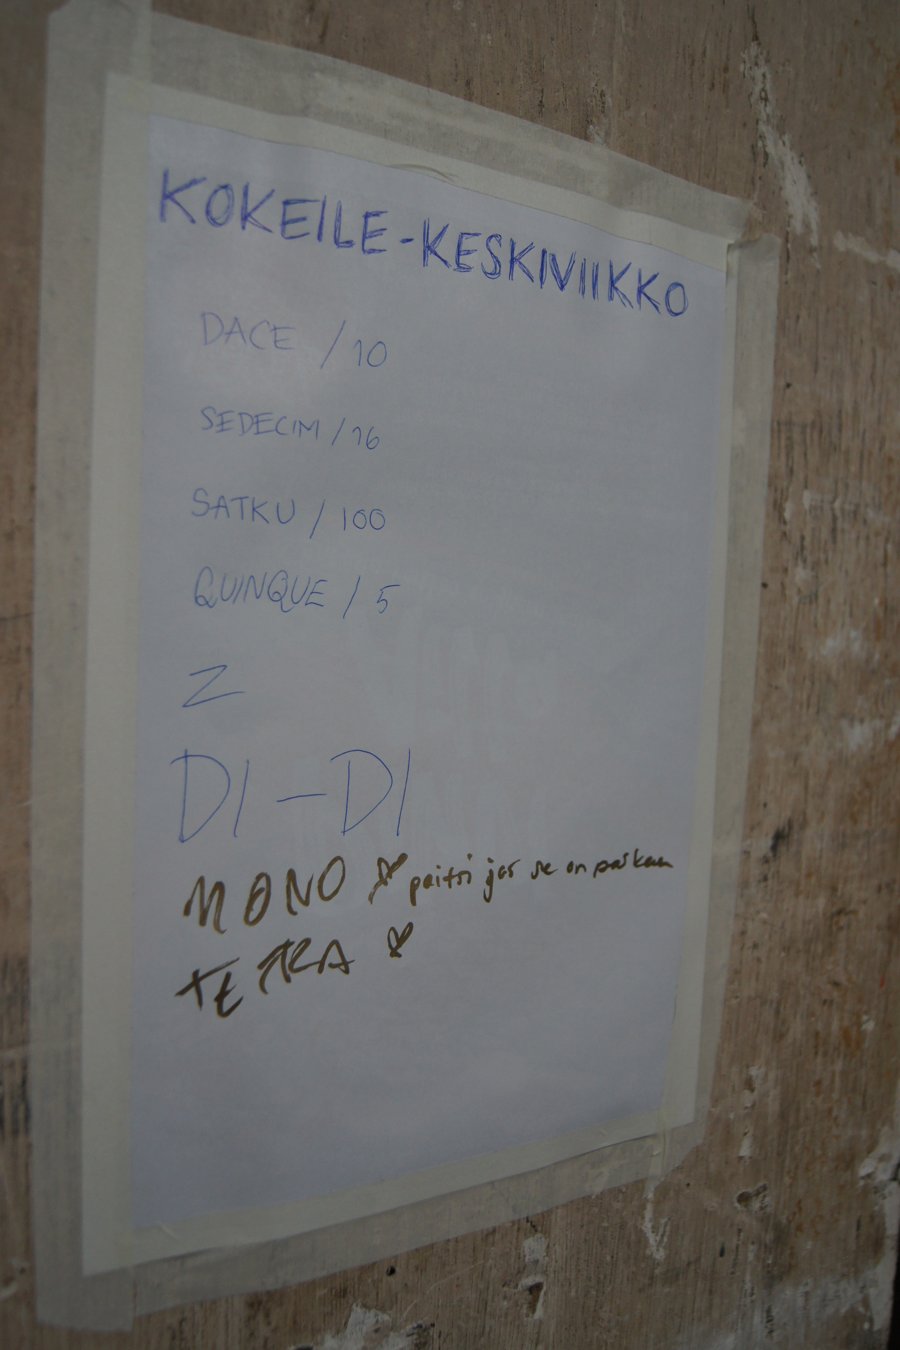 KOKEILE-KESKIVIIKKO
DACE /10
SEDECIM /16
SATKU /100
QUINQUE / 5
Z
DI-DI
MONO paitsi jos se on paskaa
TETRA